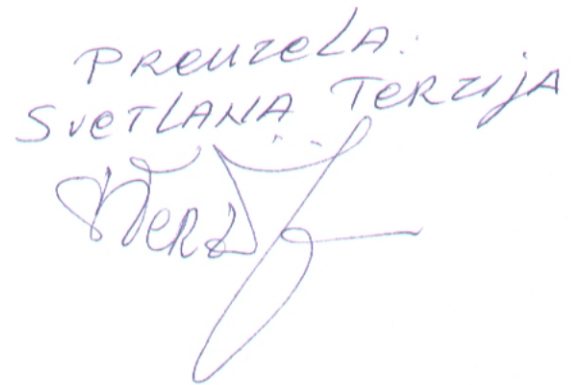 Preuzela:
Svetlana Terzija